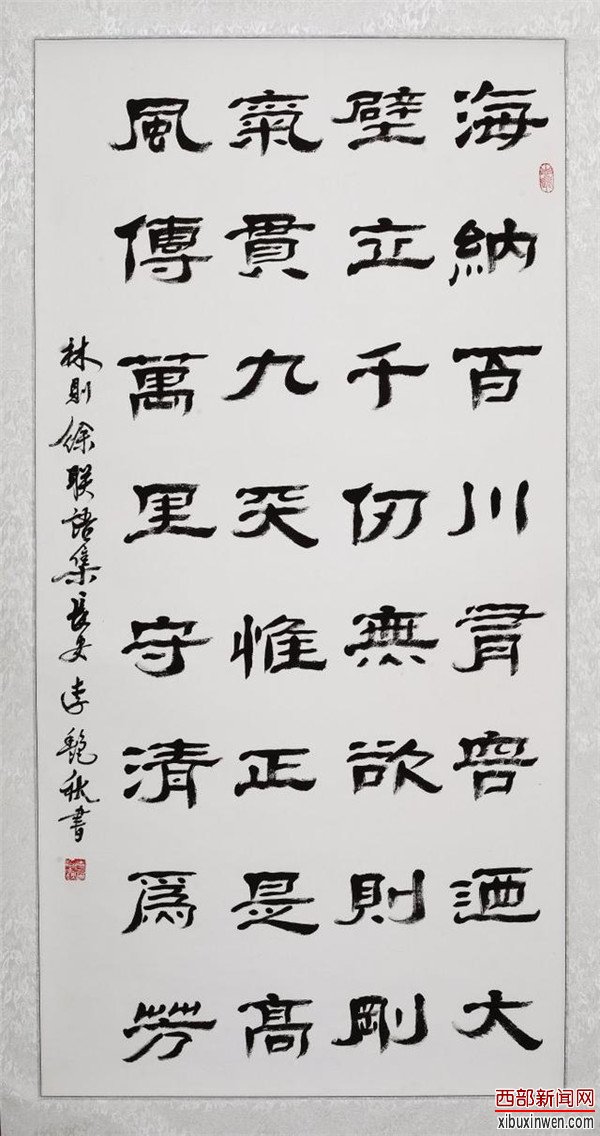 海納百川有容迺大
壁立千仞無欲則剛
氣貫九天惟正是高
風傳萬里守清為芳
林則徐联語集長文李艷秋書
西部新闻网
xibuxinwen.com